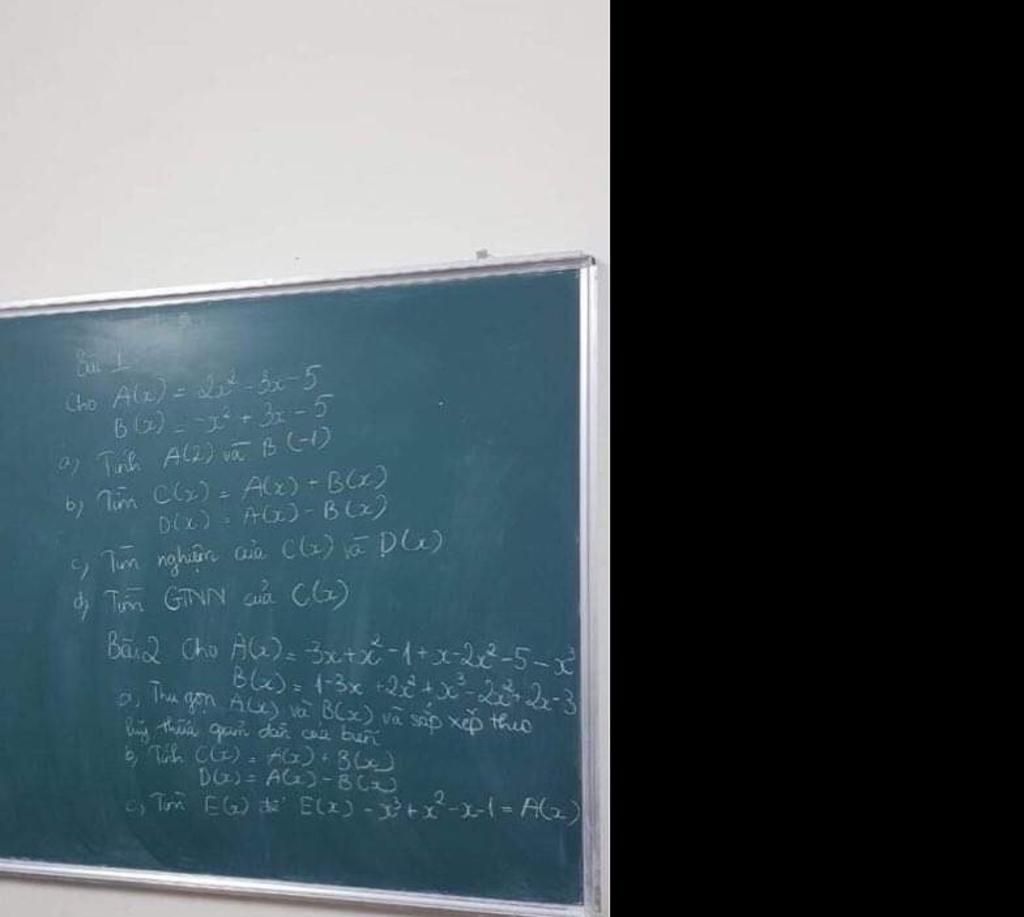 Bài 1
Cho A(x) = 2x² - 3x - 5
B(x) = -x² + 3x - 5
a) Tính A(2) và B(-1)
b) Tìm C(x) = A(x) + B(x)
D(x) = A(x) - B(x)
c) Tìm nghiệm của C(x) và D(x)
d) Tìm GTNN của C(x)
Bài 2 Cho A(x) = 3x + x² - 1 + x - 2x² - 5 - x³
B(x) = 1 - 3x + 2x² + x³ - 2x² + 2x - 3
a) Thu gọn A(x) và B(x) và sắp xếp theo
lũy thừa giảm dần của biến
b) Tính C(x) = A(x) + B(x)
D(x) = A(x) - B(x)
c) Tìm E(x) để E(x) - x³ + x² - x - 1 = A(x)